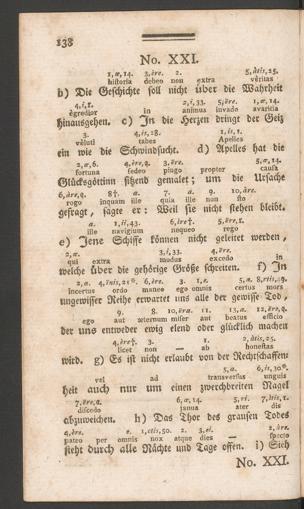 138
No. XXI.
1,æ,14. 3,ēre. 2. 5,ātis,25.
historia debeo non extra vēritas
b) Die Geschichte soll nicht über die Wahrheit
4,i,1. 2,i,33. 5,ēre. 1,æ,14.
ēgredior in animus invado avaritia
hinausgehen. c) In die Herzen dringt der Geiz
3. 4,is,28. 1,is,1.
vēluti tabes Apelles
ein wie die Schwindsucht. d) Apelles hat die
2,æ,6. 4,ēre,q. 3,ēre. 5,æ,14.
fortuna sedeo pingo propter causa
Glücksgöttinn sitzend gemalt; um die Ursache
6,āre,q. 8†. a. 7. a. 9. 10,āre.
rogo inquam ille quia ille non sto
gefragt, sagte er: Weil sie nicht stehen bleibt.
a. 1,ii,43. 6,ire†. 5,ēre,1.
ille navigium nequeo rego
e) Jene Schiffe können nicht geleitet werden,
2,æ. 3,i,33. 4,ēre.
qui extra modus excedo in
welche über die gehörige Größe schreiten. f) In
2,a. 4,ĭnis,21*. 6,ēre. 3. 1,e. 5,a. 8,rtis,19.
incertus ordo maneo ego omnis certus mors
ungewisser Reihe erwartet uns alle der gewisse Tod,
9. 8. 10,ēra. 11. 13,a. 12,ēre,q.
ego aut æternum miser aut beatus efficio
der uns entweder ewig elend oder glücklich machen
4,ēre†. 3. 1. 2,ātis,25.
licet non — ab honestas
wird. g) Es ist nicht erlaubt von der Rechtschaffen
5,a. 6,is,30*.
vel ad transversus unguis
heit auch nur um einen zwerchbreiten Nagel
7,ēre,q. 6,æ,14. 5,ri. 7,ĭtis,1.
discedo janua ater dis
abzuweichen. h) Das Thor des grausen Todes
4,ēre. e. 1,ctis,50. 2. 3,ei. 2,āre.
pateo per omnis nox atque dies — specto
steht durch alle Nächte und Tage offen. i) Sieh
No. XXI.